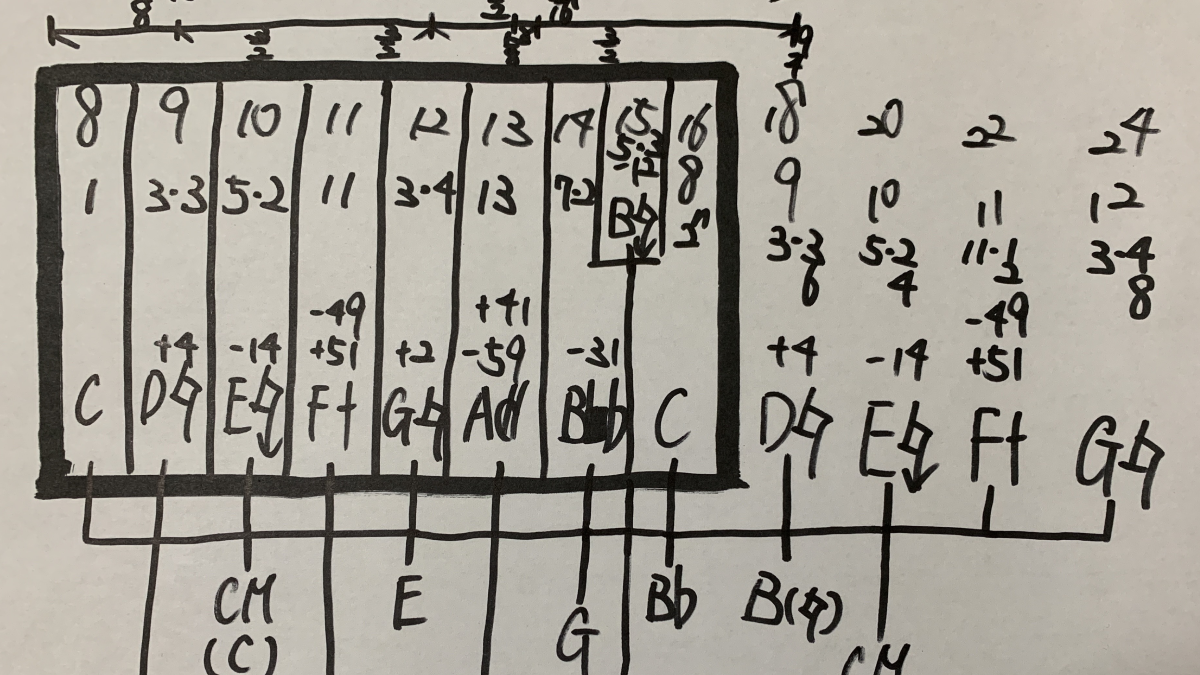 8 9 10 11 12 13 14 15 16 18 20 22 24
1 3·3 5·2 11 3·4 13 7·2 5·3 8 9 10 11 12
B♮ 3·3 5·2 11·1 3·4
6 4 2 8
-49 +41 -49
+4 -14 +51 +2 -59 -31 +4 -14 +51
C D♮ E♮ F‡ G♮ Ad B♭ C D♮ E♮ F‡ G♮
CM E B♭ B(♮)
(C) G CM